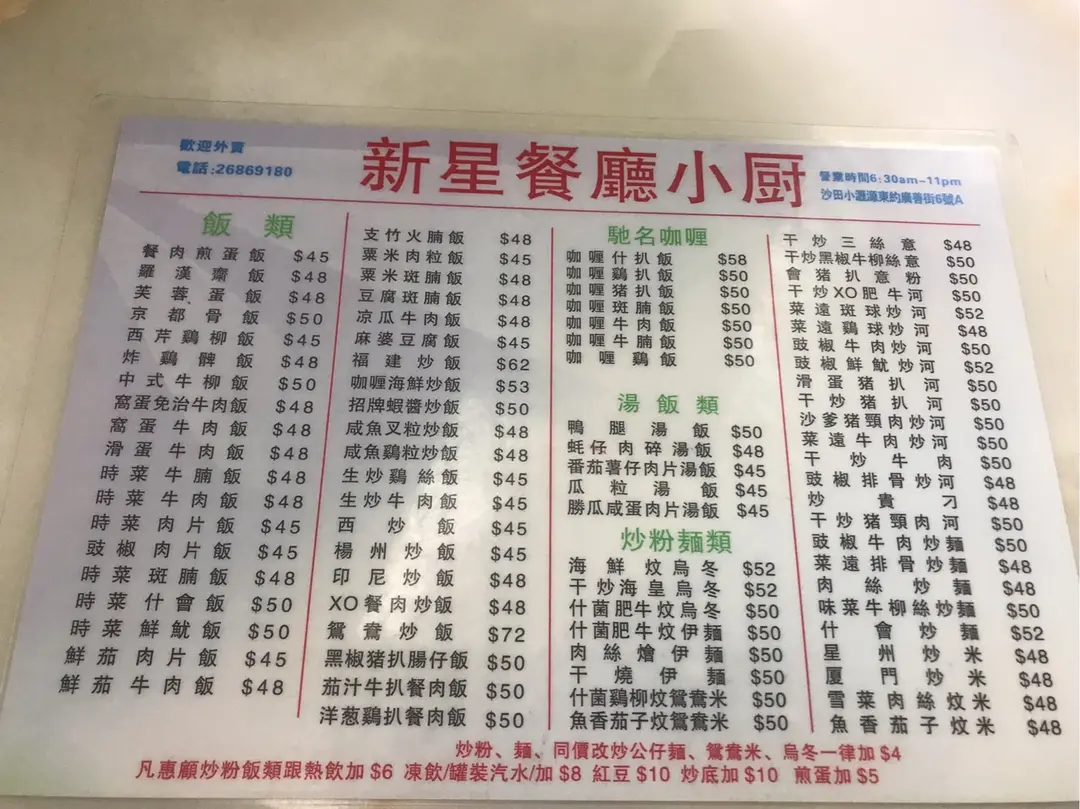 歡迎外賣
電話:26869180
新星餐廳小厨
營業時間6:30am-11pm
沙田小瀝源東約廣善街6號A
飯類
餐肉煎蛋飯 $45
羅漢齋飯 $48
芙蓉蛋飯 $48
京都骨飯 $50
西芹鷄柳飯 $45
炸鷄髀飯 $48
中式牛柳飯 $50
窩蛋免治牛肉飯 $48
窩蛋牛肉飯 $48
滑蛋牛肉飯 $48
時菜牛腩飯 $48
時菜牛肉飯 $48
時菜肉片飯 $45
豉椒肉片飯 $45
時菜斑腩飯 $48
時菜什會飯 $50
時菜鮮魷飯 $50
鮮茄肉片飯 $45
鮮茄牛肉飯 $48
支竹火腩飯 $48
粟米肉粒飯 $45
粟米斑腩飯 $48
豆腐斑腩飯 $48
凉瓜牛肉飯 $48
麻婆豆腐飯 $45
福建炒飯 $62
咖喱海鮮炒飯 $53
招牌蝦醬炒飯 $50
咸魚叉粒炒飯 $48
咸魚鷄粒炒飯 $48
生炒鷄絲飯 $45
生炒牛肉飯 $45
西炒飯 $45
楊州炒飯 $45
印尼炒飯 $48
XO餐肉炒飯 $48
鴛鴦炒飯 $72
黑椒猪扒腸仔飯 $50
茄汁牛扒餐肉飯 $50
洋葱鷄扒餐肉飯 $50
馳名咖喱
咖喱什扒飯 $58
咖喱鷄扒飯 $50
咖喱猪扒飯 $50
咖喱斑腩飯 $50
咖喱牛肉飯 $50
咖喱牛腩飯 $50
咖喱鷄飯 $50
湯飯類
鴨腿湯飯 $50
蚝仔肉碎湯飯 $48
番茄薯仔肉片湯飯 $45
瓜粒湯飯 $45
勝瓜咸蛋肉片湯飯 $45
炒粉麵類
海鮮炆烏冬 $52
干炒海皇烏冬 $52
什菌肥牛炆烏冬 $50
什菌肥牛炆伊麵 $50
肉絲燴伊麵 $50
干燒伊麵 $50
什菌鷄柳炆鴛鴦米 $50
魚香茄子炆鴛鴦米 $50
干炒三絲意 $48
干炒黑椒牛柳絲意 $50
會猪扒意粉 $50
干炒XO肥牛河 $50
菜遠斑球炒河 $52
菜遠鷄球炒河 $48
豉椒牛肉炒河 $50
豉椒鮮魷炒河 $52
滑蛋猪扒河 $50
干炒猪扒河 $50
沙爹猪頸肉炒河 $50
菜遠牛肉炒河 $50
干炒牛肉 $50
豉椒排骨炒河 $48
炒貴刁 $48
干炒猪頸肉河 $50
豉椒牛肉炒麵 $50
菜遠排骨炒麵 $48
肉絲炒麵 $48
味菜牛柳絲炒麵 $50
什會炒麵 $52
星州炒米 $48
厦門炒米 $48
雪菜肉絲炆米 $48
魚香茄子炆米 $48
炒粉、麵、同價改炒公仔麵、鴛鴦米、烏冬一律加 $4
凡惠顧炒粉飯類跟熱飲加 $6 凍飲/罐裝汽水/加 $8 紅豆 $10 炒底加 $10 煎蛋加 $5